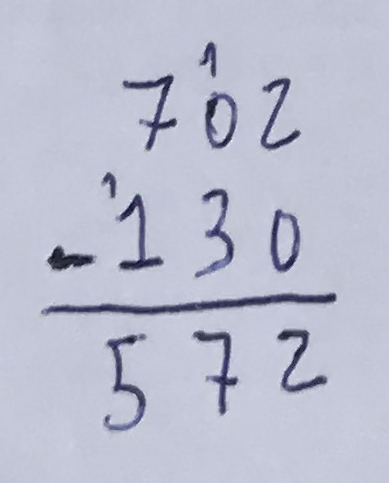 1
702
1
-130
572